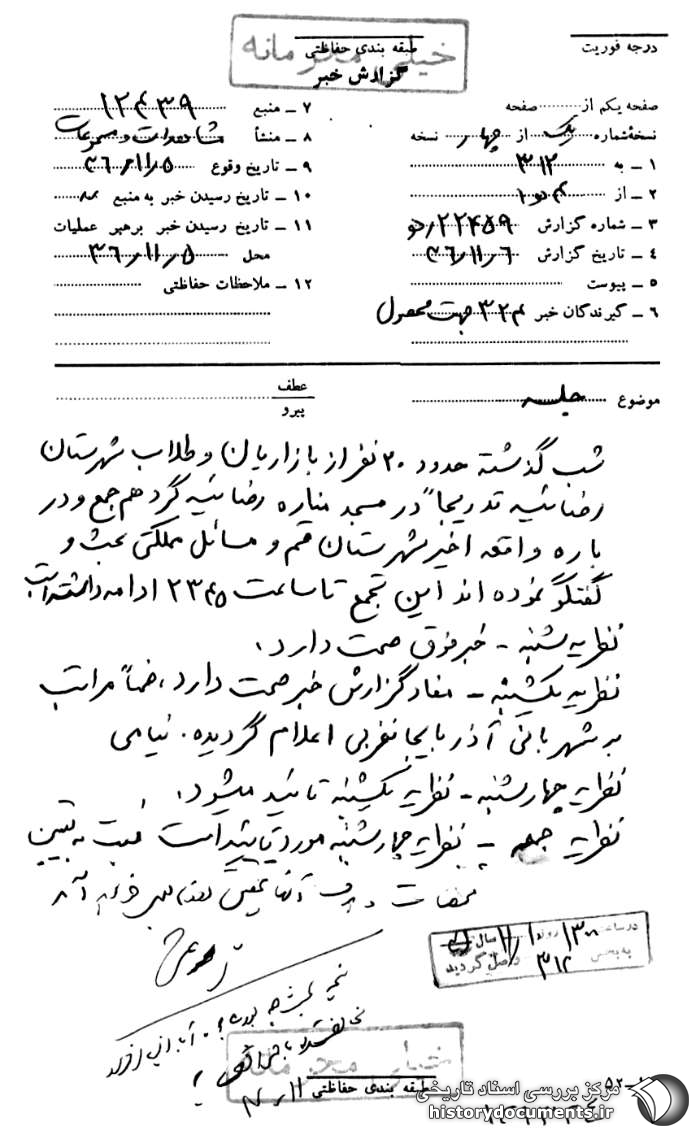 خیلی محرمانه
درجه فوریت
طبقه بندی حفاظتی
گزارش خبر
صفحه یکم از صفحه
نسخه شماره یک از چهار نسخه
۱ – به ۳۱۲
۲ – از
۳ – شماره گزارش ۲۲۴۵۹
۴ – تاریخ گزارش ۳۶/۱۱/۶
۵ – پیوست
۶ – گیرندگان خبر ۳۲۴ جهت محصول
۷ – منبع ۱۲۴۳۹
۸ – منشأ مشاهدات و مسموعات
۹ – تاریخ وقوع ۳۶/۱۱/۵
۱۰ – تاریخ رسیدن خبر به منبع
۱۱ – تاریخ رسیدن خبر برهبر عملیات
محل ۳۶/۱۱/۵
۱۲ – ملاحظات حفاظتی
موضوع جلسه
عطف
پیرو
شب گذشته حدود ۲۰ نفر از بازاریان و طلاب شهرستان
رضائیه تدریجاً در مسجد مناره رضائیه گرد هم جمع و در
باره واقعه اخیر شهرستان قم و مسائل مملکتی بحث و
گفتگو نموده اند این تجمع تا ساعت ۲۳۴۵ ادامه داشته است
نظریه شنبه – خبر فوق صحت دارد.
نظریه یکشنبه – مفاد گزارش خبر صحت دارد، ضمناً مراتب
به شهربانی آذربایجانغربی اعلام گردیده. نیامی
نظریه چهارشنبه – نظریه یکشنبه تائید میشود.
نظریه جمعه – نظریه چهارشنبه مورد تایید است نسبت به تعیین
در ساعت ۱۳۰۰ روز
به بخش ۳۱۲ واصل گردید
نتیجه بحث چه بوده؟
طبقه بندی حفاظتی
مرکز بررسی اسناد تاریخی
historydocuments.ir